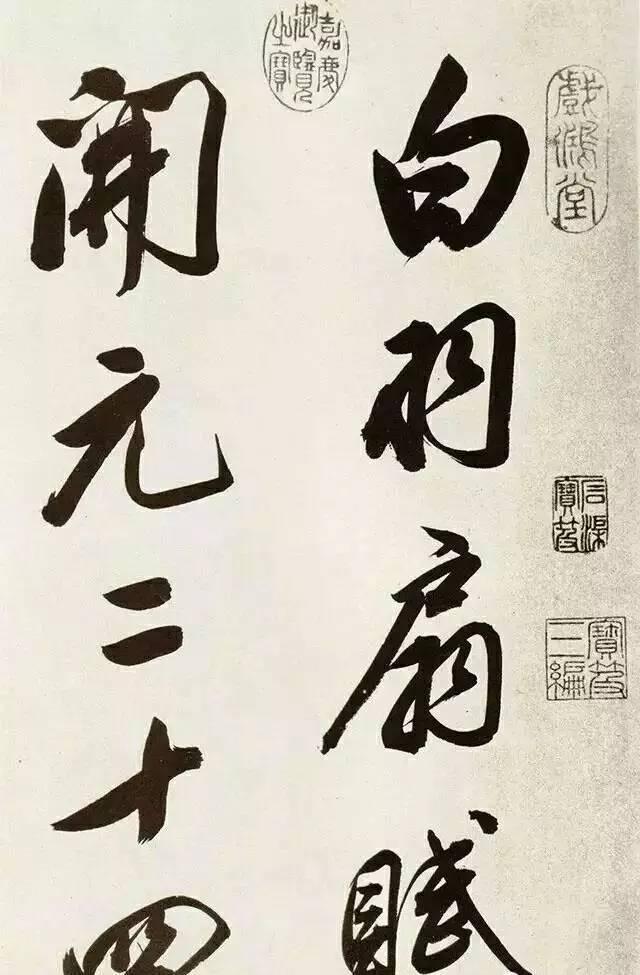 白羽扇賦
開元二十四
嘉慶御覽之寶
戲鴻堂
石渠寶笈
寶笈三編